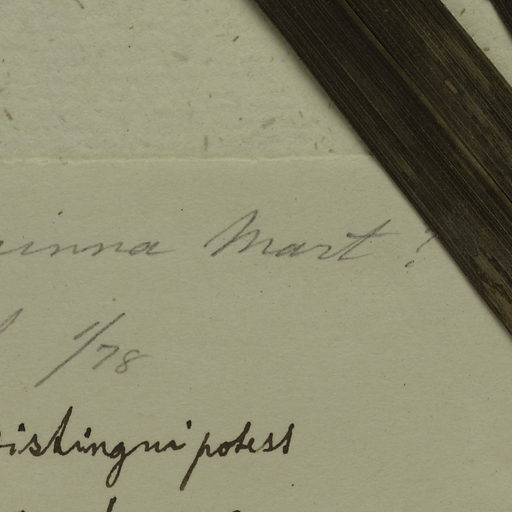 inna Mart ?
1/78
distingui potest